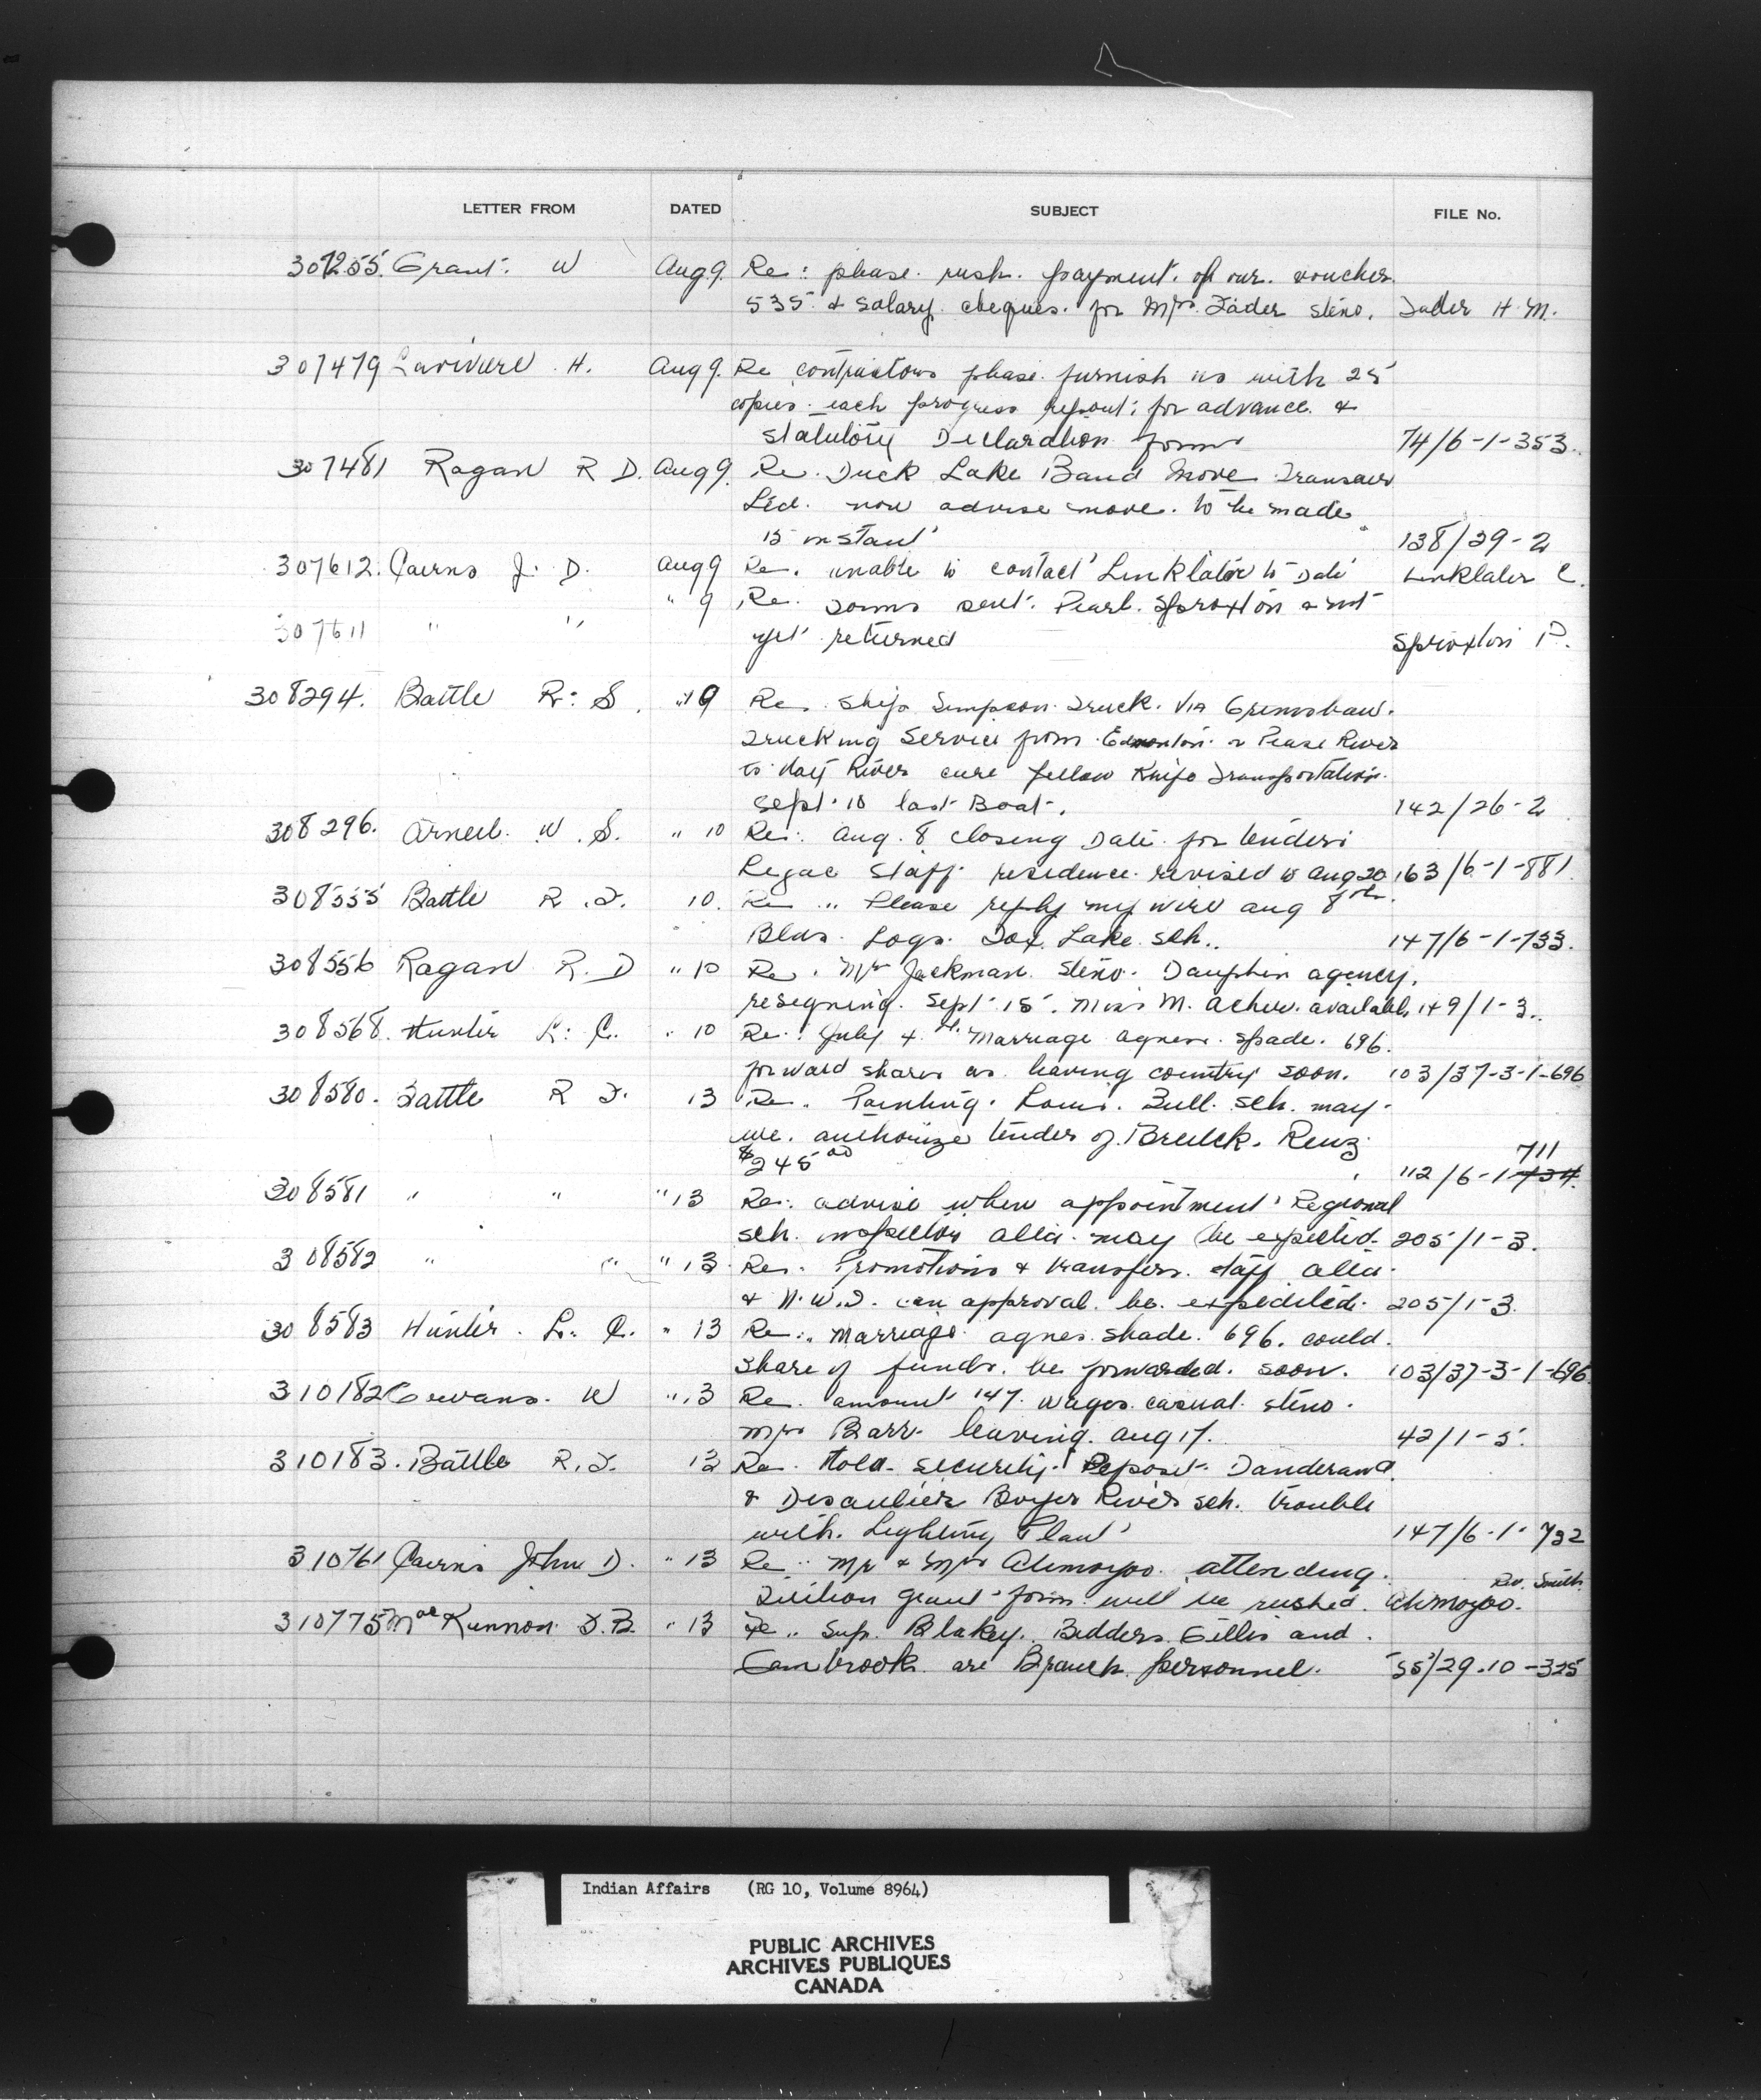 LETTER FROM DATED SUBJECT FILE No.
307255. Grant. W Aug 9. Re: please rush payment of our voucher
535 & salary cheques for Mrs. Fader steno. Fader H. M.
307479 Lariviere H. Aug 9. Re contractors please furnish us with 25
copies each progress report for advance &
statutory Declaration forms 74/6-1-353.
307481 Ragan R D. Aug 9. Re. Duck Lake Band move Transair
Ltd. now advise move to be made
15 instant 138/29-2
307612. Cairns J. D. Aug 9 Re. unable to contact Linklater to Date Linklater C.
" 9 Re. Forms sent Pearl Sproxton & not
307611 " " yet returned Sproxton P.
308294. Battle R. S. " 9 Re. Ship Simpson Truck Via Grimshaw
Trucking Service from Edmonton or Peace River
to Hay River care Yellow Knife Transportation
Sept. 10 last Boat. 142/26-2
308296. Arneil W. S. " 10 Re: Aug. 8 closing Date for tenders
staff residence revised to Aug 20 163/6-1-881.
308555 Battle R. F. 10. Re " Please reply my wire Aug 8th.
Logs Fox Lake sch.. 147/6-1-733.
308556 Ragan R. D " 10 Re. Mrs Jackman steno. Dauphin agency,
resigning Sept 15. Miss M. available 149/1-3..
308568. Hunter L. C. " 10 Re: July 4th. Marriage Agnes Spade. 696.
forward shares as leaving country soon. 103/37-3-1-696
308580. Battle R F. 13 Re. Painting Louis Bull sch. may
we. authorize tender of Renz
$245 00 711
112/6-1-734.
308581 " " " 13 Re: advise when appointment Regional
sch. inspector alta. may be expected. 205/1-3.
308582 " " " 13. Re. Promotions & transfers staff alta.
& N.W.T. can approval be expedited. 205/1-3.
308583 Hunter L. C. " 13 Re: Marriage agnes shade. 696. could
share of funds be forwarded soon. 103/37-3-1-696.
310182 W " 13 Re. amount 147. wages casual steno.
Mrs Barr leaving Aug 17. 42/1-5.
310183. Battle R. F. 13 Re. Hold security Deposit Danderand
& Desaulier Boyer River sch. trouble
with Lighting Plant 147/6-1-732
310761 Cairns John D. " 13 Re: Mr & Mrs Ahmoyoo attending.
Rev. Smith
Tuition grant form will be rushed. Ahmoyoo.
310775 MacKinnon D.B. " 13 Re.. Sup. Blakey. Bidders Gillis and
Cambrook are Branch personnel. 55/29-10-325
Indian Affairs (RG 10, Volume 8964)
PUBLIC ARCHIVES
ARCHIVES PUBLIQUES
CANADA